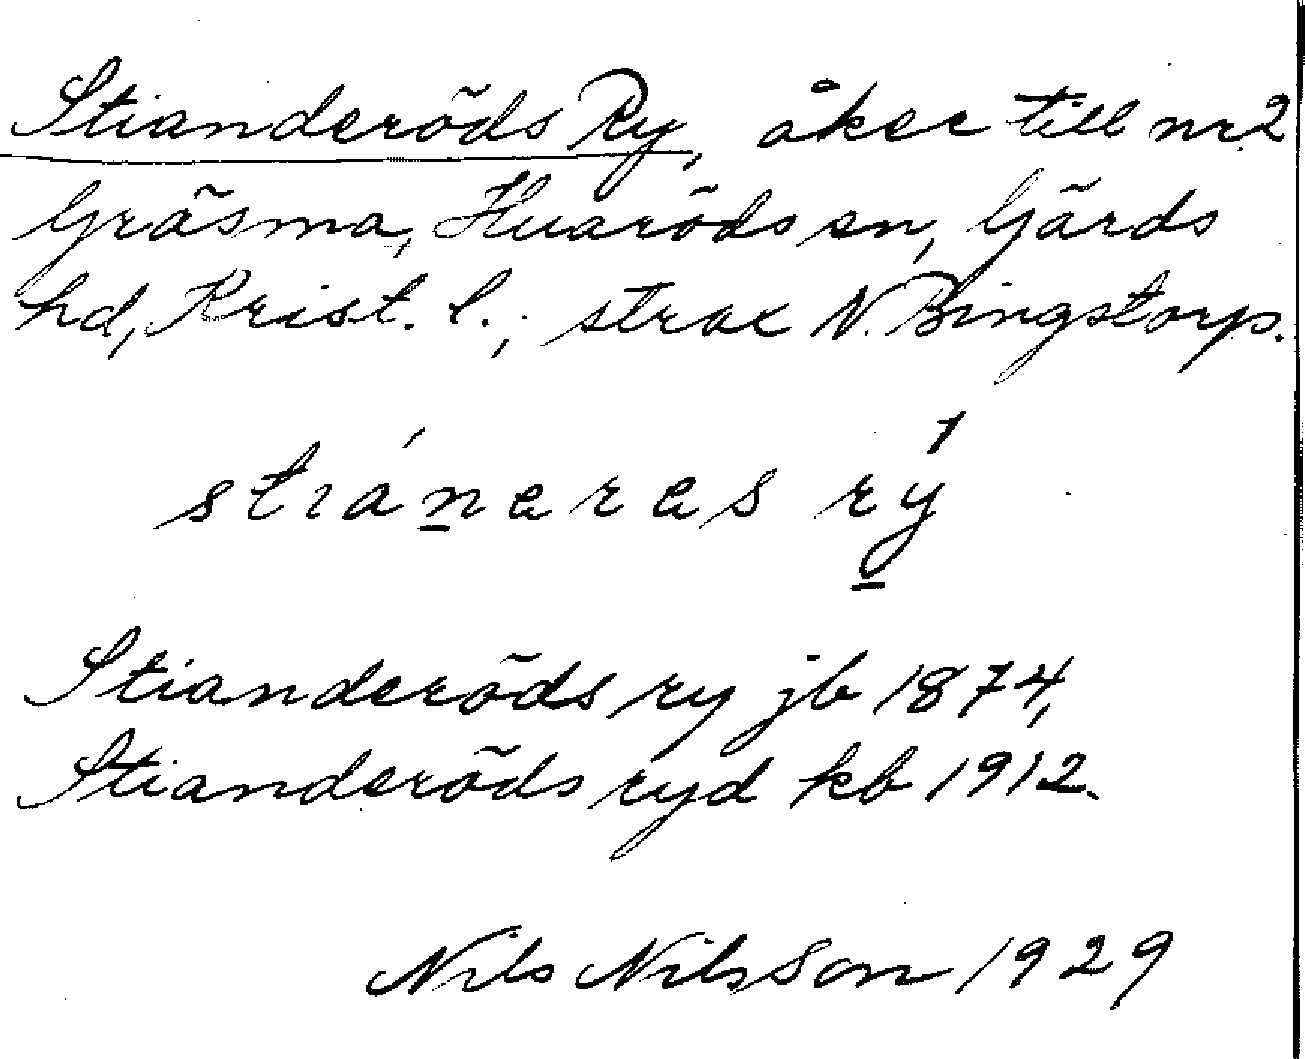 Stianderöds Ry, åker till nr 2
Gräsma, Huaröds sn, Gärds
hd, Krist. l., strax N. Bingstorp.
stıáneres rý
Stianderöds ry jb 1874,
Stianderöds ryd kb 1912.
Nils Nilsson 1929